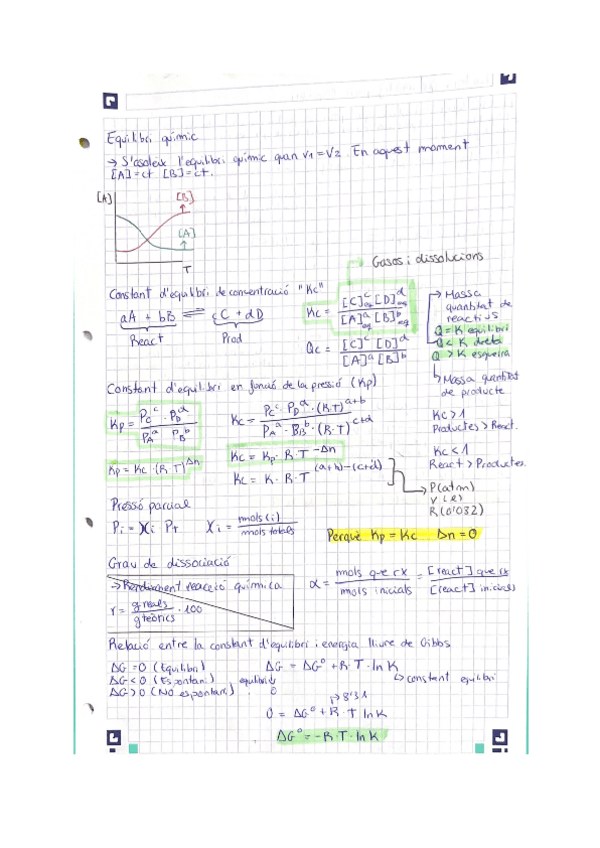 Equilibri químic
→ S'asoleix l'equilibri químic quan V1 = V2. En aquest moment
[A] = ct [B] = ct.
[A]
[B]
[A]
T
Gasos i dissolucions
Constant d'equilibri de concentració "Kc"
aA + bB ⇌ cC + dD
React Prod
Kc = [C]^c_eq [D]^d_eq / [A]^a_eq [B]^b_eq
Qc = [C]^c [D]^d / [A]^a [B]^b
→ Massa
quantitat de
reactius
Q = K equilibri
Q < K dreta
Q > K esquerra
↳ Massa quantitat
de producte
Kc > 1
Productes > React.
Kc < 1
React > Productes.
Constant d'equilibri en funció de la pressió (Kp)
Kp = Pc^c · PD^d / PA^a PB^b
Kc = Pc^c · PD^d · (R·T)^a+b / PA^a · PB^b · (R·T)^c+d
Kc = Kp · R·T^-Δn
Kp = Kc · (R·T)^Δn
Kc = K · R·T^(a+b)-(c+d)
→ P(atm)
V (l)
R (0'032)
Pressó parcial
Pi = Xi · PT Xi = mols (i) / mols totals
Perquè Kp = Kc Δn = 0
Grau de dissociació
→ Rendiment reacció química
r = g reals / g teòrics · 100
α = mols que rx / mols inicials = [react] que rx / [react] inicials
Relació entre la constant d'equilibri i energia lliure de Gibbs
ΔG = 0 (Equilibri) ΔG = ΔG° + R·T·ln K
ΔG < 0 (Espontani) equilibri ↳ constant equilibri
ΔG > 0 (No espontani) 0
→ 8'31
0 = ΔG° + R·T ln K
ΔG° = -R·T·ln K